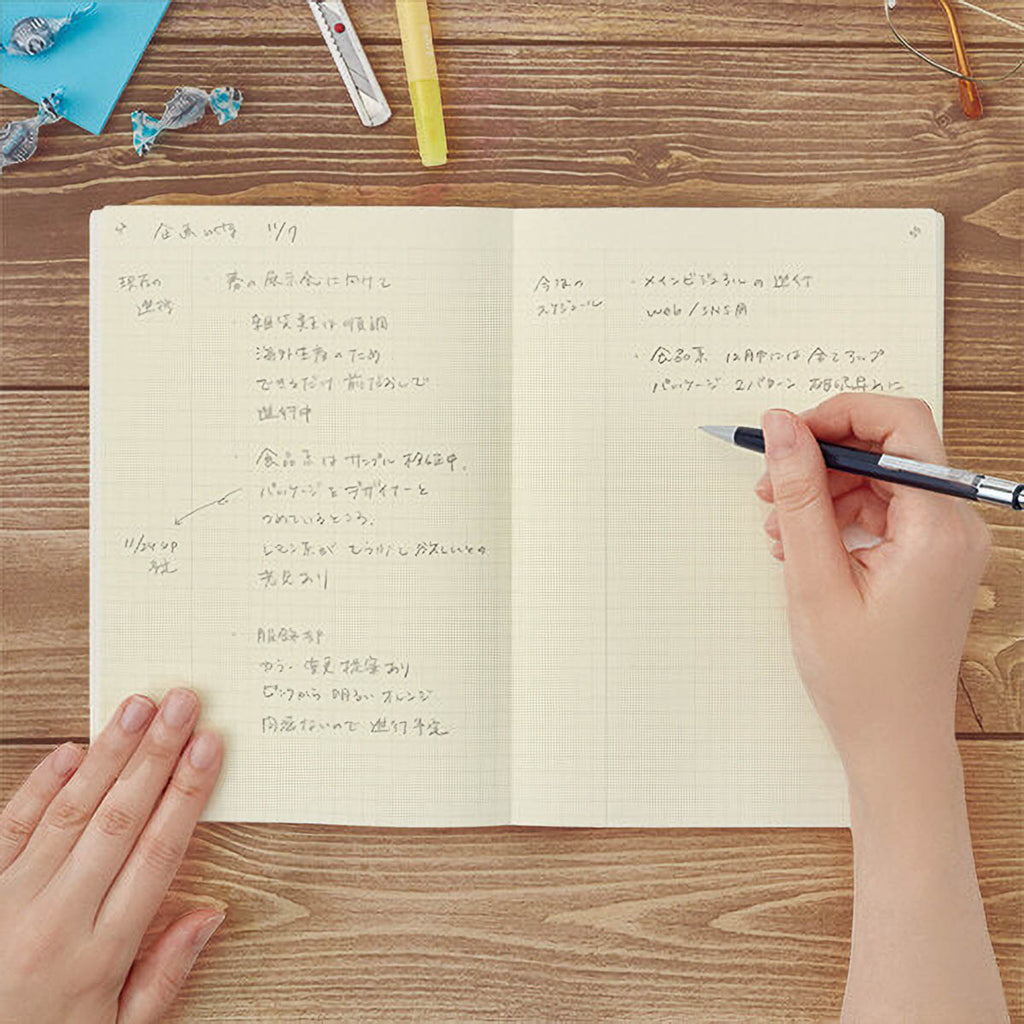 企画 11/7
現在の
進捗
・春の展示会に向けて
・雑貨類は順調
海外生産のため
できるだけ前だおしで
進行中
・食品系はサンプル検証中。
パッケージをデザイナーと
つめているところ。
11/24 UP
予定
レモン系がもう少し欲しいとの
意見あり
・服飾
カラー変更提案あり
ピンクから明るいオレンジ
問題ないので進行予定
今後の
スケジュール
・メインビジュアルの進行
web/SNS用
・食品系 12月中には全てアップ
パッケージ 2パターン